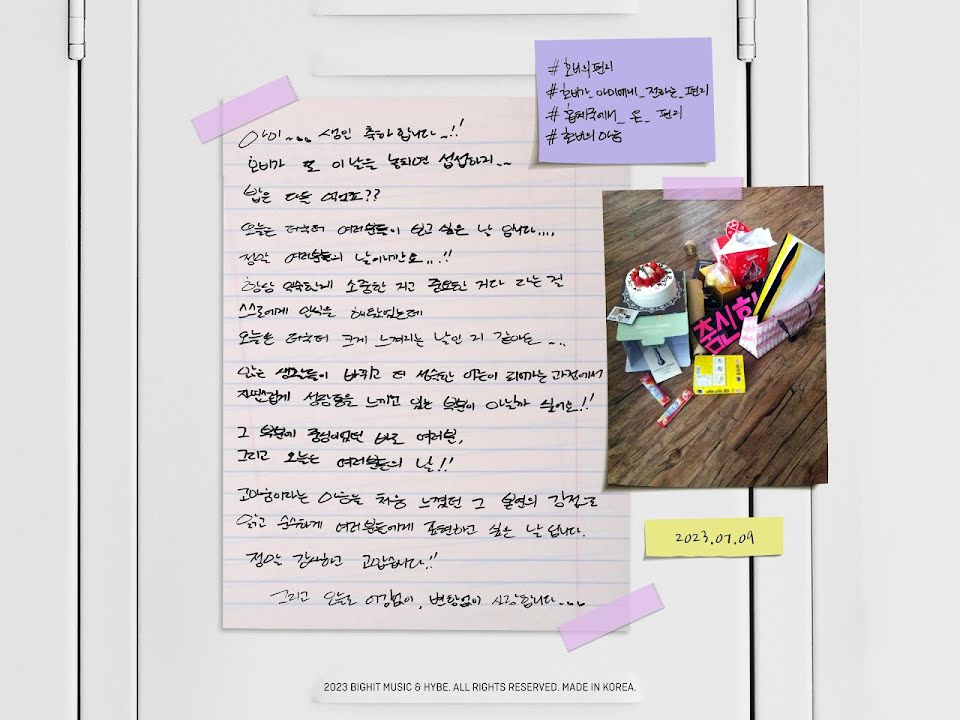 아미... 생일 축하합니다..!!
호비가 또 이 날을 놓치면 섭섭하지..
밥은 다들 먹었죠??
오늘은 더욱더 여러분들이 보고 싶은 날 입니다....
정말 여러분들의 날이니깐요..!!
항상 익숙한게 소중한 거고 중요한 거다 라는 걸
스스로에게 인식을 해왔었는데
오늘은 더욱더 크게 느껴지는 날인 거 같아요...
많은 생각들이 바뀌고 더 성숙한 어른이 되어가는 과정에서
자연스럽게 성장통을 느끼고 있는 부분이 아닐까 싶어요!!
그 부분에 중심이었던 바로 여러분,
그리고 오늘은 여러분들의 날!!
고마움이라는 마음을 처음 느꼈던 그 본연의 감정으로
맑고 순수하게 여러분들에게 표현하고 싶은 날 입니다.
정말 감사하고 고맙습니다!!
그리고 오늘도 어김없이, 변함없이 사랑합니다....
# 호비의편지
# 호비가_아미에게_전하는_편지
# 홉체국에서_온_편지
# 호비의마음
출신
2023.07.09
2023 BIGHIT MUSIC & HYBE. ALL RIGHTS RESERVED. MADE IN KOREA.